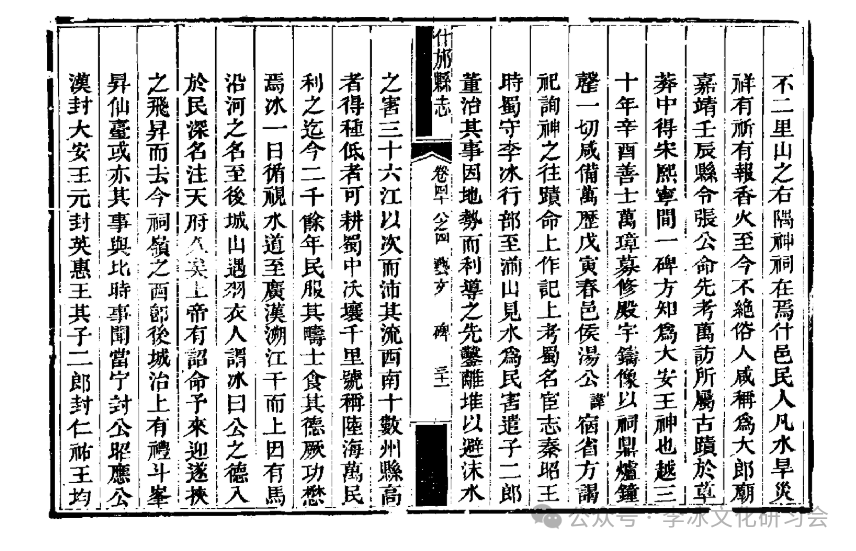 不二里山之右隅神祠在焉什邑民人凡水旱災
祥有祈有報香火至今不絕俗人咸稱爲大郎廟
嘉靖壬辰縣令張公命先考萬訪所屬古蹟於草
莽中得宋熙寧間一碑方知爲大安王神也越三
十年辛酉善士萬璋募修殿宇鑄像以祠鼎爐鐘
磬一切咸備萬歷戊寅春邑侯湯公諱宿省方謁
祀詢神之往蹟命上作記上考蜀名宦志秦昭王
時蜀守李冰行部至湔山見水爲民害遣子二郎
董治其事因地勢而利導之先鑿離堆以避沫水
什邡縣志
卷四十 公之四 藝文 碑 三十一
之害三十六江以次而沛其流西南十數州縣高
者得種低者可耕蜀中沃壤千里號稱陸海萬民
利之迄今二千餘年民服其疇士食其德厥功懋
焉冰一日循視水道至廣漢溯江干而上因有馬
沿河之名至後城山遇羽衣人謂冰曰公之德入
於民深名注天府久矣上帝有詔命予來迎遂挾
之飛昇而去今祠嶺之西鄙後城治上有禮斗峯
昇仙臺或亦其事與比時事聞當宁封公昭應公
漢封大安王元封英惠王其子二郎封仁祐王均
公众号·李冰文化研习会